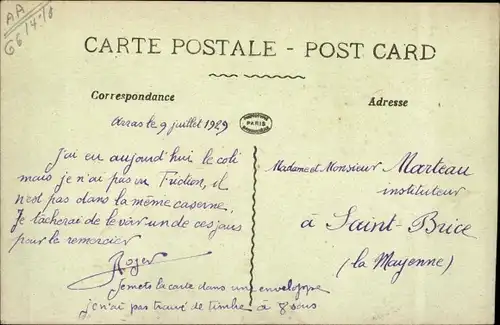 AA
66/4-8
CARTE POSTALE - POST CARD
Correspondance
PARIS
Adresse
Arras le 9 juillet 1929
J'ai eu aujourd'hui le coli
mais je n'ai pas vu Fridion, il
n'est pas dans la même caserne.
Je tâcherai de le voir un de ces jours
pour le remercier
Roger
Je mets la carte dans une enveloppe
je n'ai pas trouvé de timbre à 8 sous
Madame et Monsieur Marteau
instituteur
à Saint-Brice
(la Mayenne)